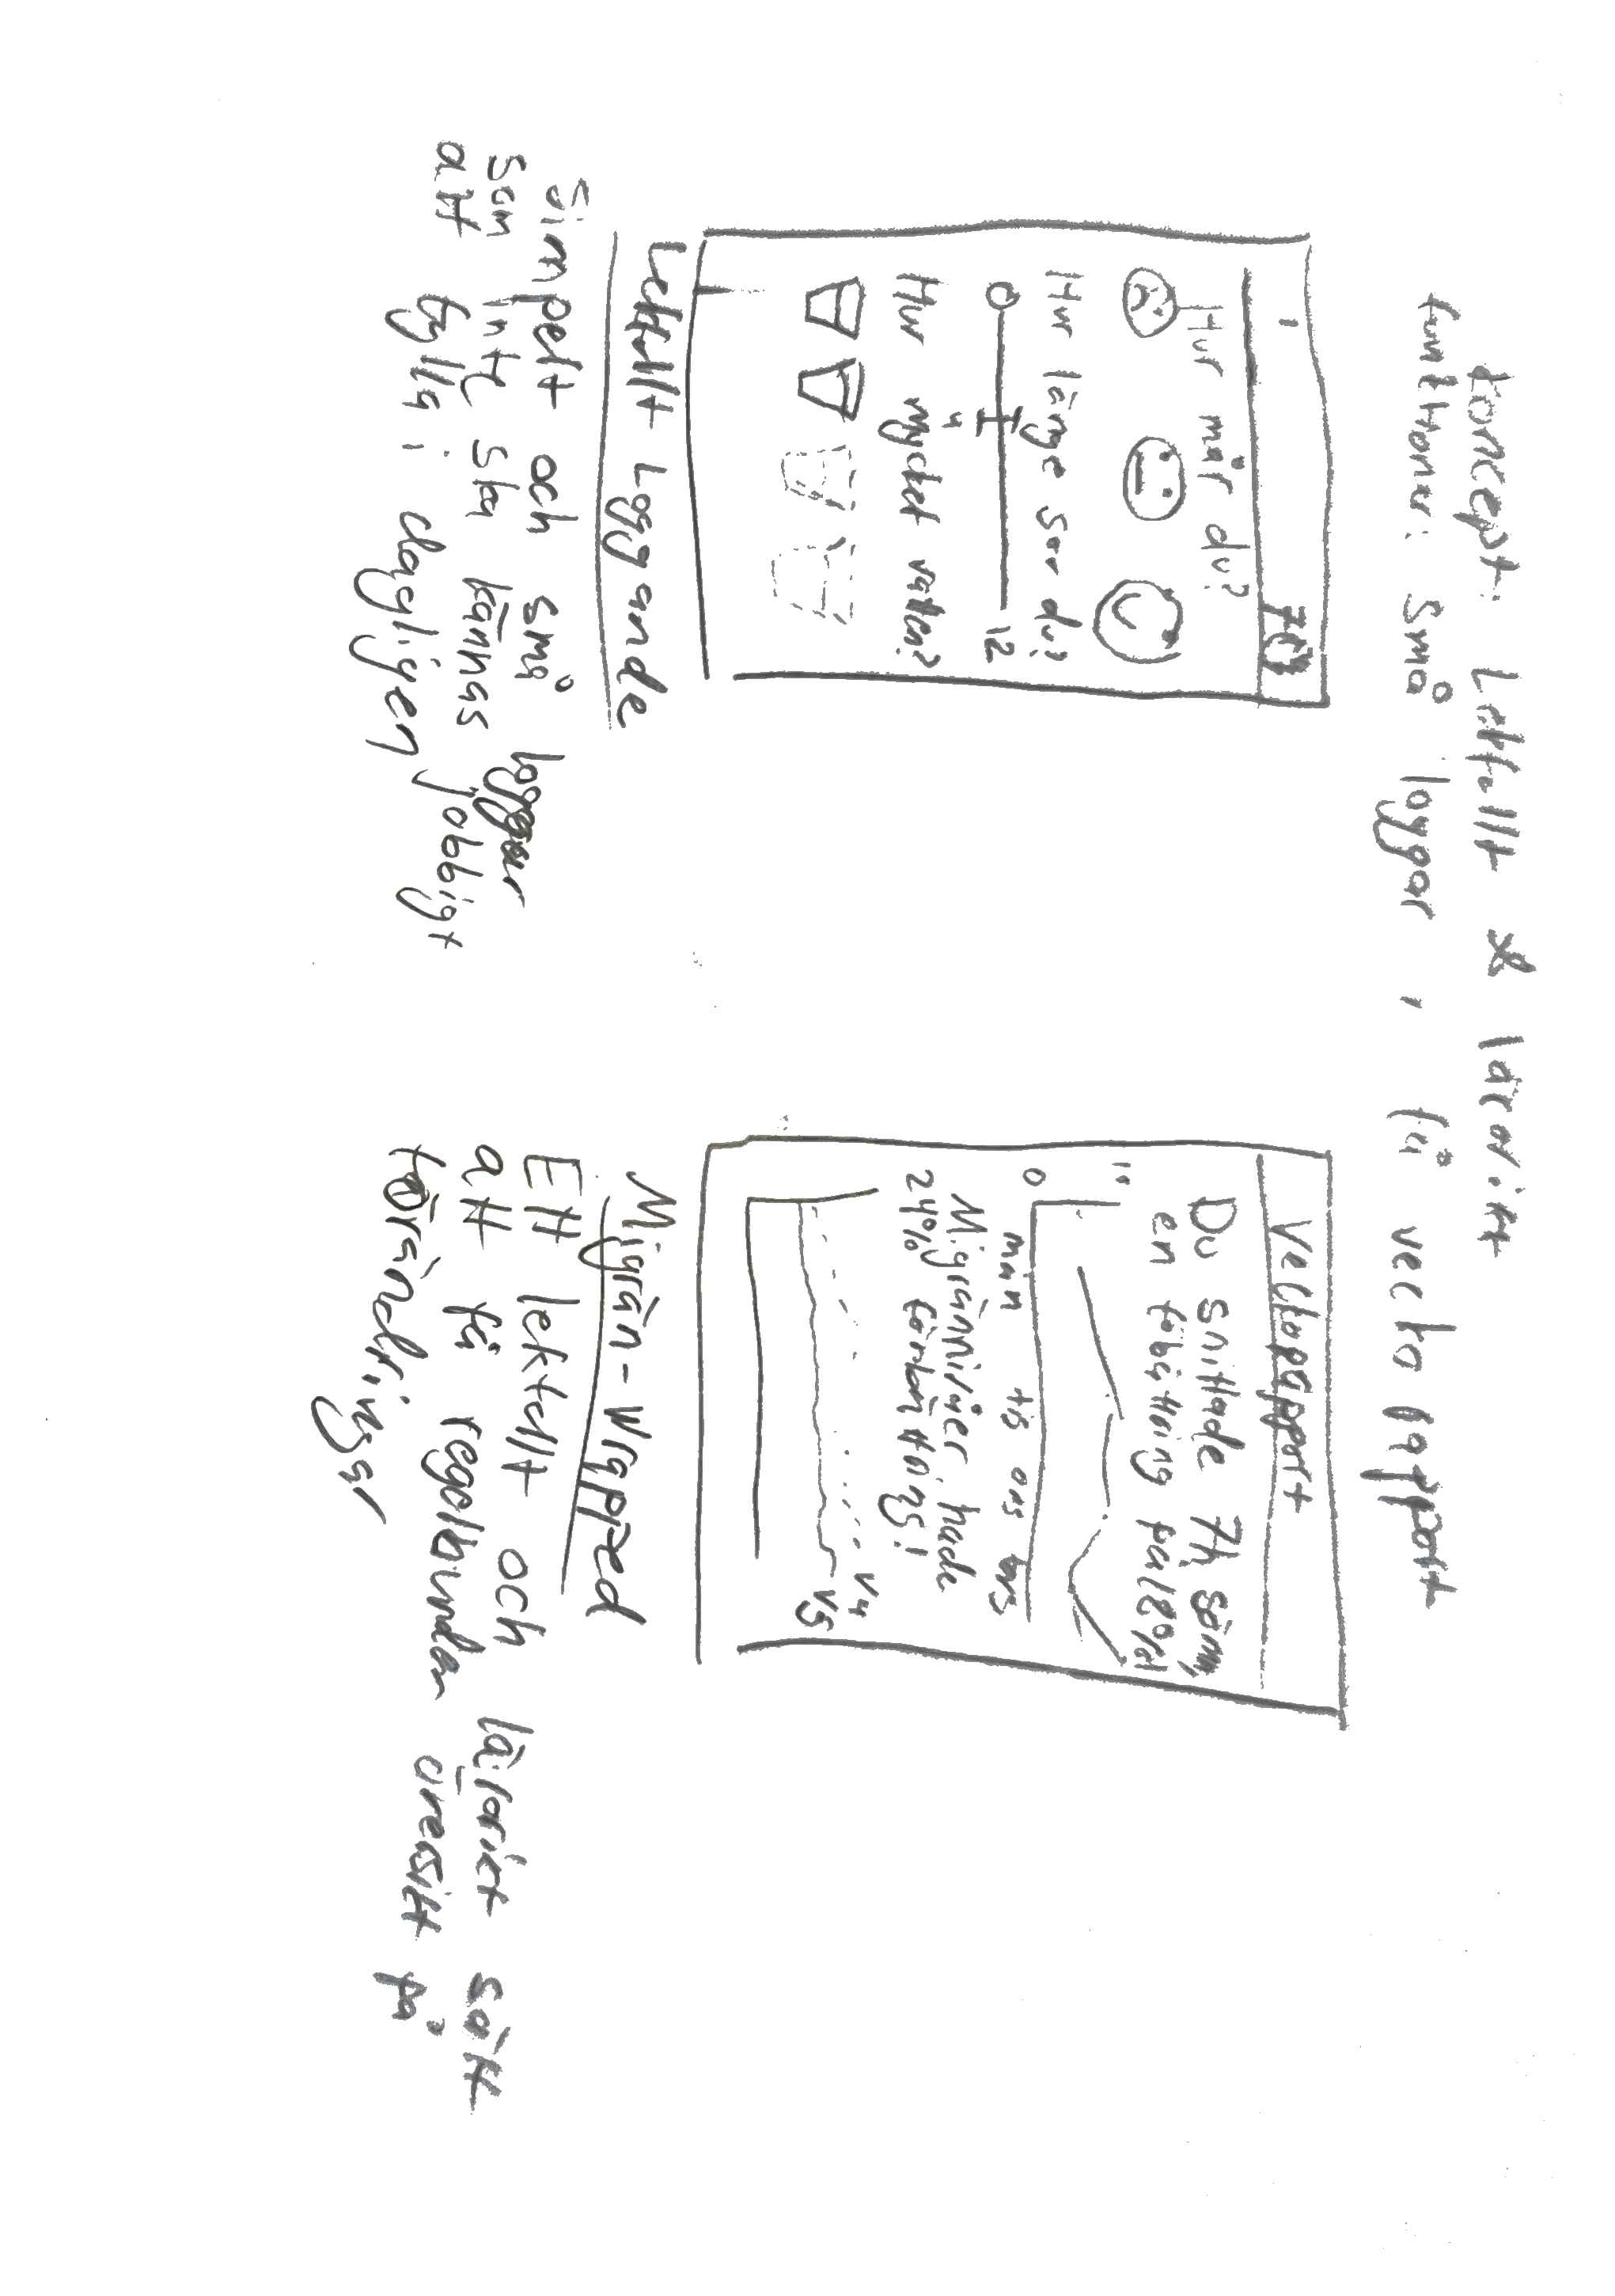 koncept: Lekfullt & lärorikt
funktioner: små loggar, få vecko rapport
Hur mår du?
Hur länge sov du?
0 4 12
Hur mycket vatten?
Lekfullt Loggande
Simpelt och små loggar
som inte ska kännas jobbigt
att fylla i dagligen
Veckorapport
Du snittade 7h sömn
en förbättring på 18%!
10
0
mån tis ons tors
Migrännivåer hade
24% förbättring!
V4
V5
Migrän-Wrapped
Ett lekfullt och lärorikt sätt
att få regelbunden översikt på
förändringar